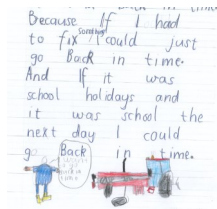 Because If I had
to fix something I could just
go Back in time.
And If it was
school holidays and
it was school the
next day I could
go Back in time.